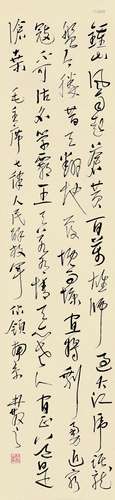 鍾山風雨起蒼黃百萬雄師過大江虎踞龍
盤今勝昔天翻地覆慨而慷宜將剩勇追窮
寇不可沽名學霸王天若有情天亦老人間正道是
滄桑 毛主席七律人民解放軍佔領南京 林散之